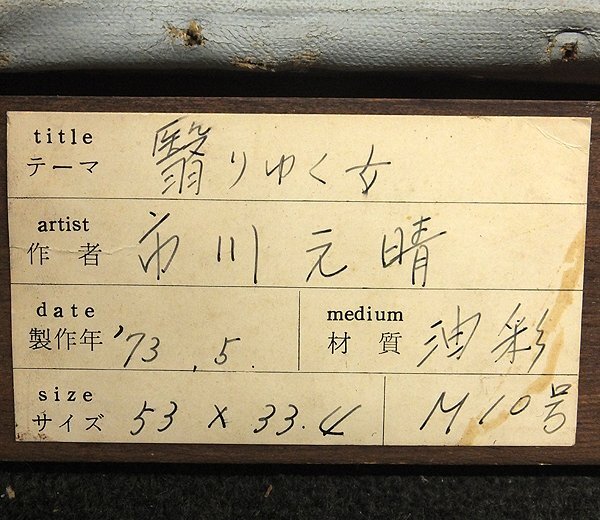 title
テーマ 翳りゆく女
artist
作者 市川元晴
date
製作年 '73.5.
medium
材質 油彩
size
サイズ 53 × 33.4 M10号